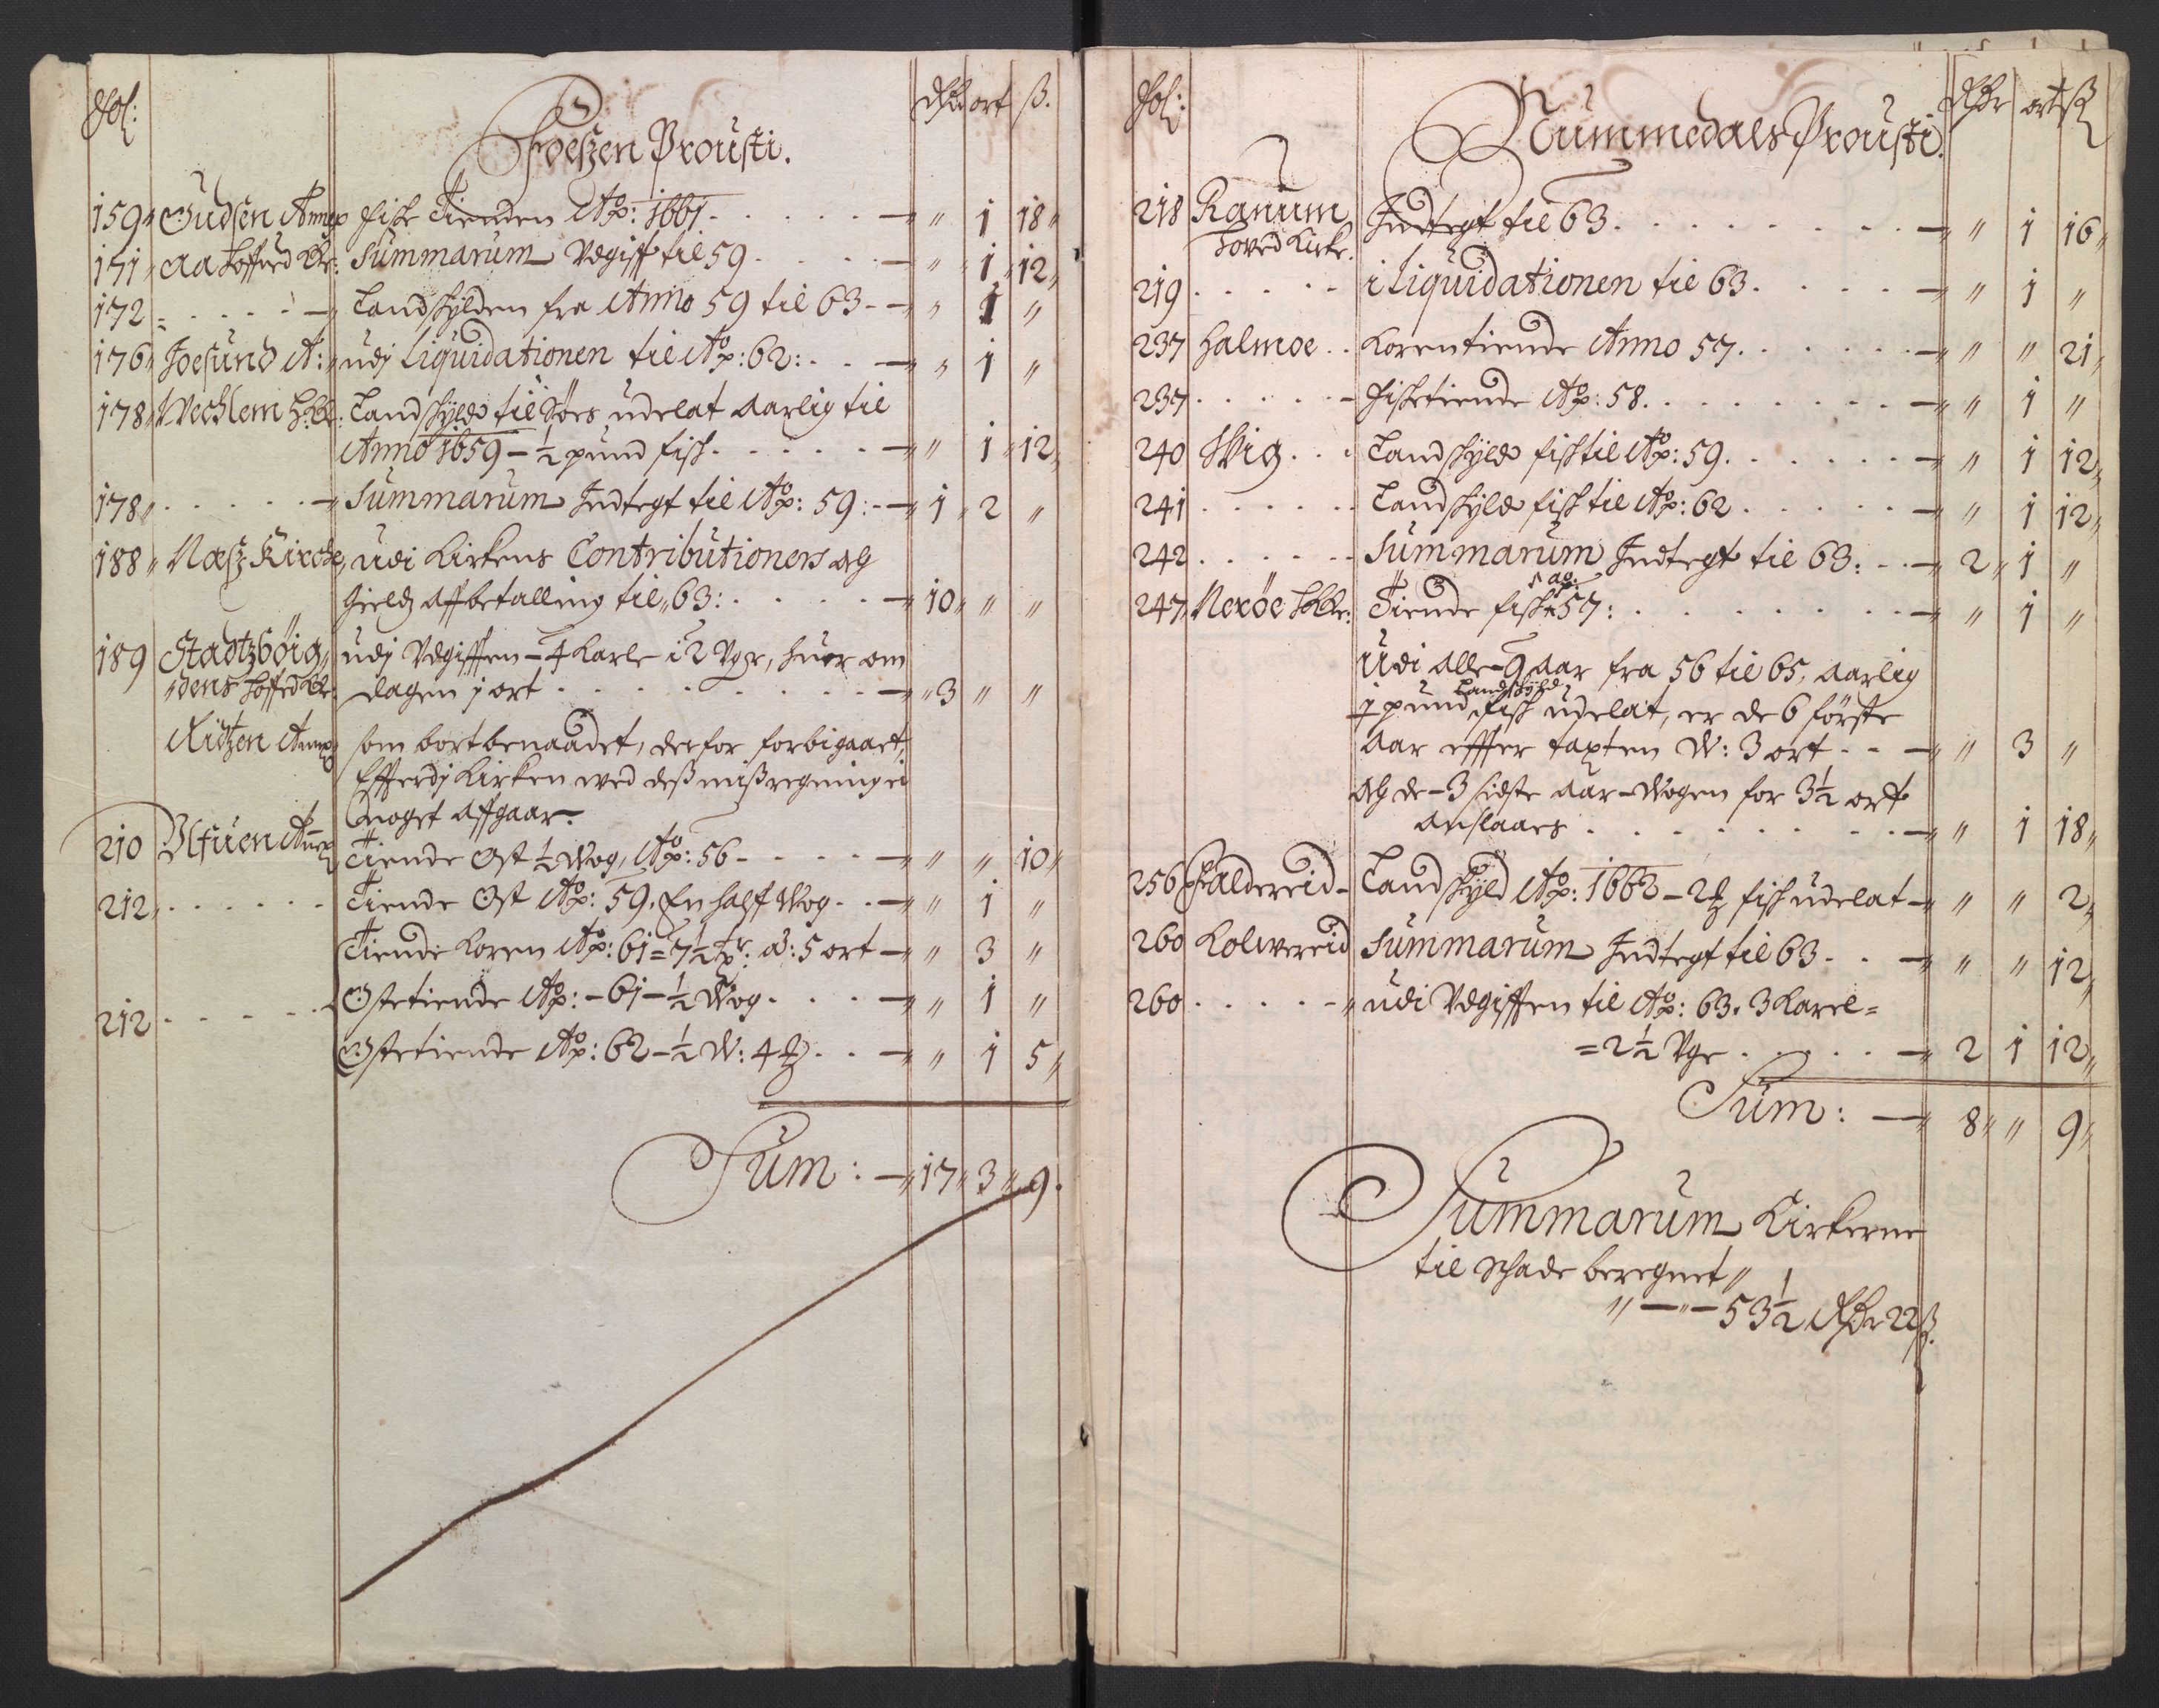 Fol:
Foeszen Prousti.
Rdr ort ß.
159 Gudsen Annex Fiske Tienden Aō: 1661 - " 1 18 "
171 Aa Hoffued Kr: Summarum Vdgifft til 59 - " 1 12
172 - Landskylden fra Anno 59 til 63 - " 1 "
176 Joesund A: udj Liquidationen til Aō: 62: - " 1 "
178 Wechlem H:K: Landskyld til Sörs udelat aarlig til
Anno 1659 - ½ pund fisk - " 1 12
178 - Summarum Indtegt til Aō: 59: - 1 2 "
188 Næsz Kircke, udi Kirkens Contributioners og
Gields affbetalling til 63: - 10 " "
189 Stadtzböig udj Vdgifften - 4 Karle i 2 Vgr, huer om
dens Hoffd Kr: dagen j ort - 3 " "
Ridtzen Annex som bortbenaadet, derfor forbigaaet,
Efferdj Kirken wed desz miszregning ei
noget affgaar.
210 Ylfuen Annex Tiende Ost ½ Wog, Aō: 56 - " " 10 "
212 - Tiende Ost Aō: 59. En half Wog - " 1 "
Tiende Koren Aō: 61 = 7½ tr: a: 5 ort - " 3 "
212 - Ostetiende Aō: - 61 - ½ Wog - " 1 "
Ostetiende Aō: 62 - ½ W: 4 ℔ - " 1 5 "
Sum: - 17 " 3 " 9.
Fol:
Nummedals Prousti.
Rdr ort ß
218 Ranum Indtegt til 63 - " 1 16 "
Hoved Kirke.
219 - i Liquidationen til 63 - " 1 "
237 Halmoe Korentiende Anno 57 - " " 21
237 - Fisketiende Aō: 58 - " 1 "
240 Wig Landskyld fisk til Aō: 59 - " 1 12
241 - Landskyld fisk til Aō: 62 - " 1 12
242 - Summarum Indtegt til 63: - 2 1 "
247 Neröe H Kr: Tiende fisk ao. 57: - " 1 "
Udi alle - 9 Aar fra 56 til 65, aarlig
1 pund Landskyld fisk udelat, er de 6 förste
Aar effter taxten W: 3 ort - " 3 "
og de - 3 sidste Aar - Wogen for 3½ ort
anslaars - " 1 18 "
256 Foldereid - Landskyld Aō: 1662 - 2 ℔ fisk udelat - " " 2
260 Kolwereid Summarum Indtegt til 63 - " " 12
260 - udi Vdgifften til Aō: 63. 3 Karel=
=2½ Vgr - 2 1 12
Sum: - 8 " " 9 "
Summarum Kirkerne
til Schade beregnet "
" - " - 53½ Rdr 22 ß.